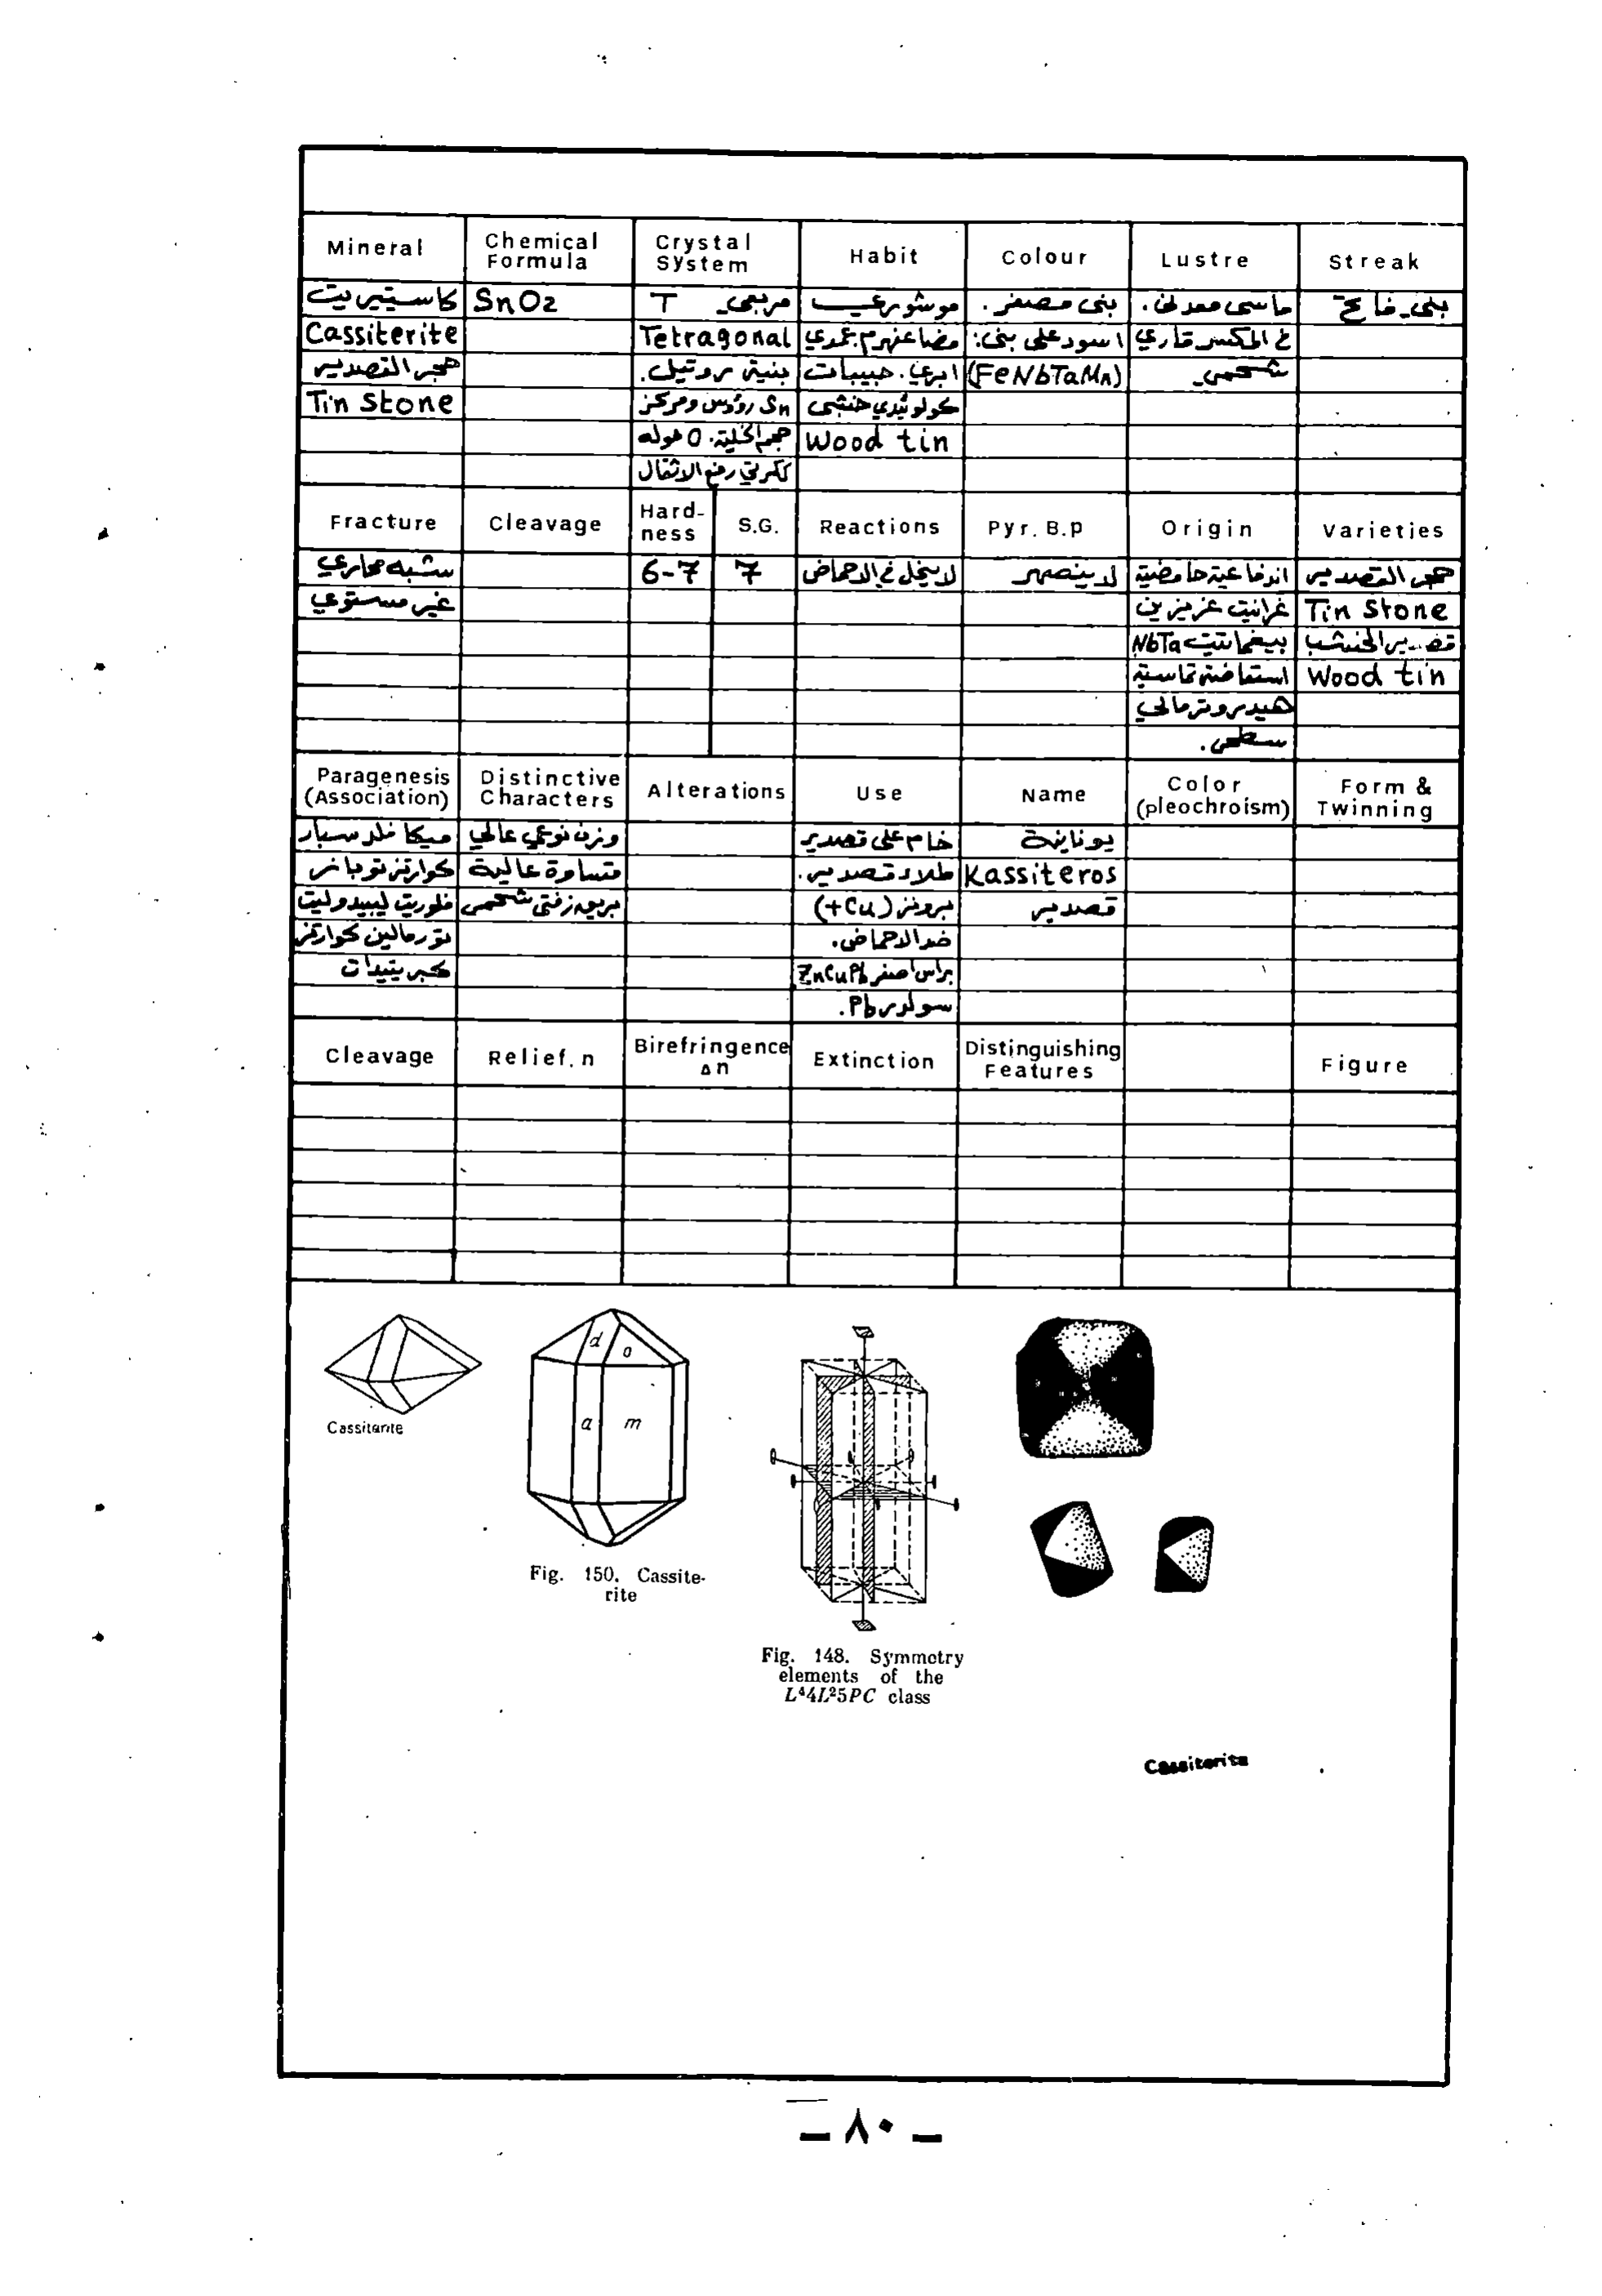 Mineral Chemical Formula Crystal System Habit Colour Lustre Streak
كاستيريت SnO2 مربعي T موشوري بني مصفر. ماسي معدني. بني فاتح
Cassiterite Tetragonal مضاعف هرم عمدي اسود على بني: في المكسر قاري
حجر القصدير بنية روتيل. ابري. حبيبات (FeNbTaMn) شحمي
Tin Stone Sn رؤوس ومركز كولوئيدي خشبي
حجم الخلية. O حوله Wood tin
ككرتي رفع الاثقال
Fracture Cleavage Hard-ness S.G. Reactions Pyr. B.p Origin Varieties
شبه محاري 6-7 7 لا ينحل في الاحماض لا ينصهر اندفاعية حامضية حجر القصدير
غير مستوي غرانيت غريزين Tin Stone
بيغماتيت NbTa قصدير الخشب
تماسية Wood tin
هيدروترمالي
سطحي.
Paragenesis (Association) Distinctive Characters Alterations Use Name Color (pleochroism) Form & Twinning
ميكا فلدسبار وزن نوعي عالي خام على قصدير يونانية
كوارتز توباز قساوة عالية طلاء قصدير. Kassiteros
فلوريت ليبيدوليت بريق زفتي شحمي برونز (Cu+) قصدير
تورمالين كوارتز ضد الاحماض.
كبريتيدات براس اصفر ZnCuPb
سولدر Pb.
Cleavage Relief. n Birefringence Δn Extinction Distinguishing Features Figure
d
o
a
m
Cassiterite
Fig. 150. Cassite-
rite
Fig. 148. Symmetry
elements of the
L⁴4L²5PC class
Cassiterite
– ٨٠ –